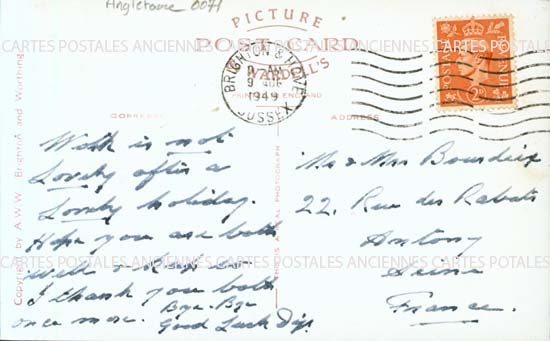 Angleterre 0071
PICTURE
POST CARD
WARDELL'S
PRINTED IN ENGLAND
BRIGHTON & HOVE
SUSSEX
9 AUG
1949
POSTAGE
REVENUE
2D
CARTES POSTALES ANCIENNES CARTES POSTALES ANCIENNES CARTES POSTALES ANCIENNES
CORRESPONDENCE
ADDRESS
Copyright by A.W.W. Brighton and Worthing
THIS IS A REAL PHOTOGRAPH
Work is not
Lovely after a
Lovely holiday.
Hope you are both
well &
I thank you both
once more.
Bye-Bye
Good Luck
Mr & Mrs Bourdeix
22, Rue des Rabats
Antony
Seine
France.
CARTES POSTALES ANCIENNES CARTES POSTALES ANCIENNES CARTES POSTALES ANCIENNES